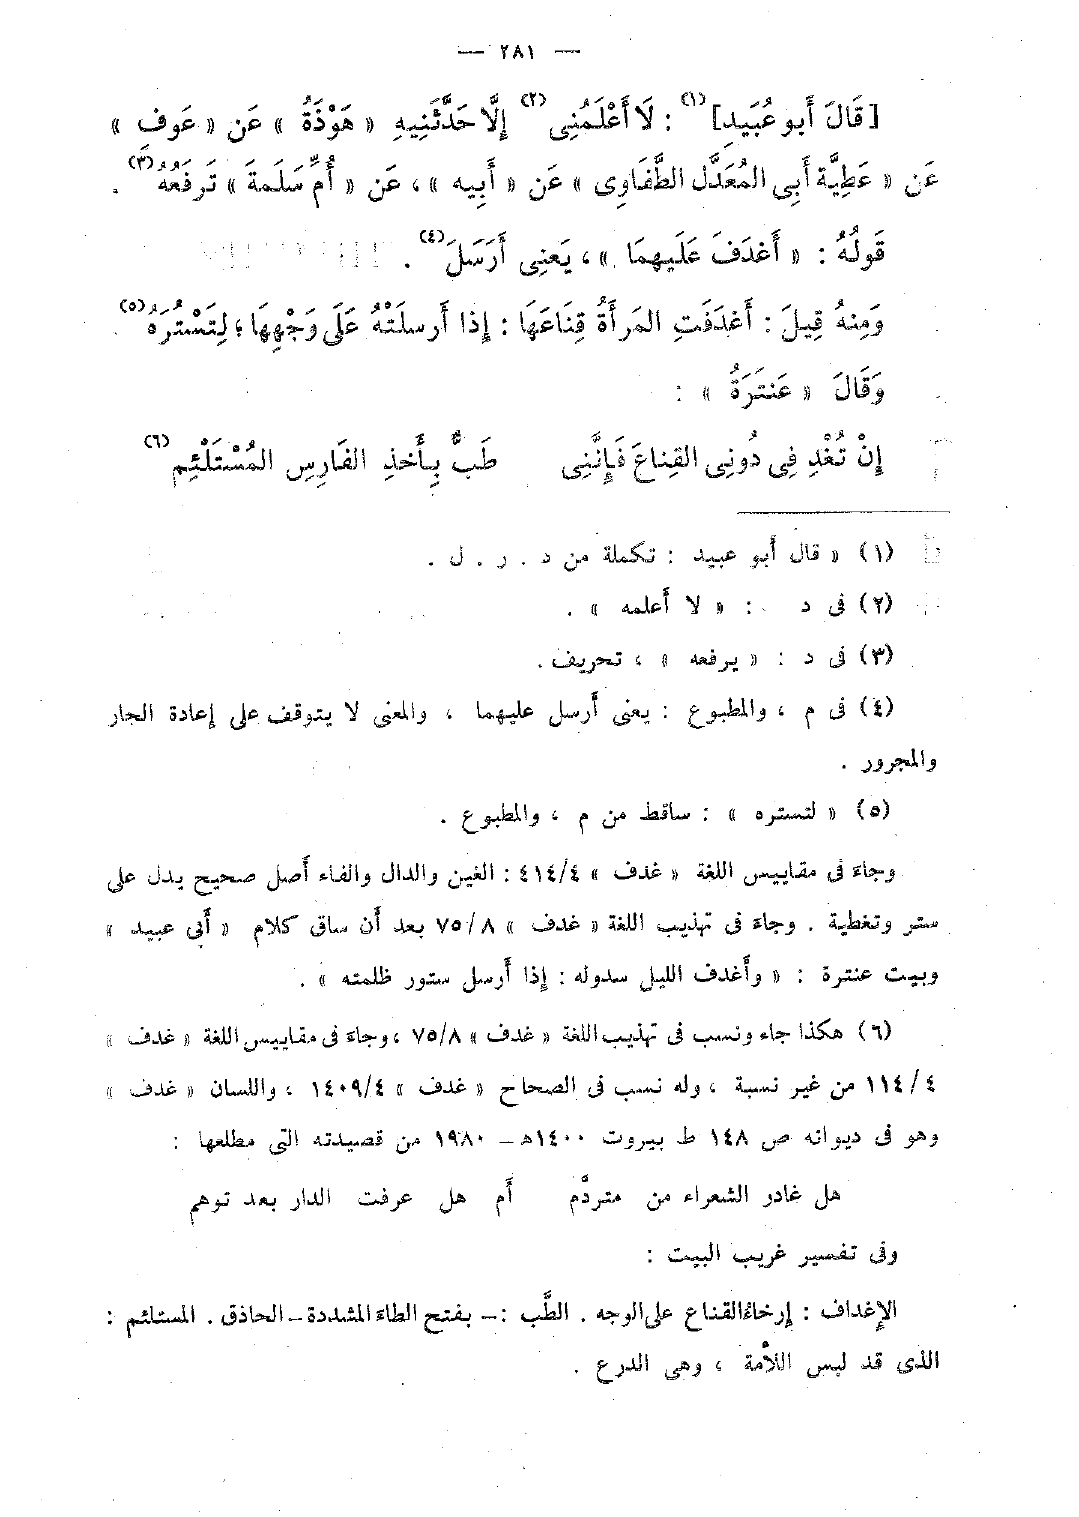 — ٢٨١ —
[قَالَ أَبو عُبَيدِ](١) : لَا أَعْلَمُنِى(٢) إِلَّا حَدَّثَنِيهِ « هَوْذَةُ » عَن « عَوفِ »
عَن « عَطِيَّة أَبِى المُعَدَّل الطَّفَاوِى » عَن « أَبِيه » ، عَن « أُمِّ سَلَمةَ » تَرفَعُهُ(٣) .
قَولُهُ : « أَغدَفَ عَلَيهِمَا » ، يَعنِى أَرَسَلَ(٤) .
وَمِنهُ قِيلَ : أَغدَفَتِ المَرأَةُ قِنَاعَهَا : إِذا أَرسلَتْهُ عَلَى وَجْهِهَا ؛ لِتَسْتُرَهُ(٥) .
وَقَالَ « عَنتَرَةُ » :
إِنْ تُغْدِ فِى دُونِى القِناعَ فَإِنَّنِى طَبٌّ بِأَخذِ الفَارِسِ المُسْتَلْئِم(٦)
(١) « قال أَبو عبيد : تكملة من د . ر . ل .
(٢) فى د : « لا أَعلمه » .
(٣) فى د : « يرفعه » ، تحريف .
(٤) فى م ، والمطبوع : يعنى أَرسل عليهما ، والمعنى لا يتوقف على إعادة الجار
والمجرور .
(٥) « لتستره » : ساقط من م ، والمطبوع .
وجاءَ فى مقاييس اللغة « غدف » ٤١٤/٤ : الغين والدال والفاء أَصل صحيح يدل على
ستر وتغطية . وجاءَ فى تهذيب اللغة « غدف » ٧٥/٨ بعد أَن ساق كلام « أَبى عبيد »
وبيت عنترة : « وأَغدف الليل سدوله : إِذا أَرسل ستور ظلمته » .
(٦) هكذا جاء ونسب فى تهذيب اللغة « غدف » ٧٥/٨ ، وجاءَ فى مقاييس اللغة « غدف »
١١٤/٤ من غير نسبة ، وله نسب فى الصحاح « غدف » ١٤٠٩/٤ ، واللسان « غدف »
وهو فى ديوانه ص ١٤٨ ط بيروت ١٤٠٠هـ – ١٩٨٠ من قصيدته التى مطلعها :
هل غادر الشعراء من متردَّم أَم هل عرفت الدار بعد توهم
وفى تفسير غريب البيت :
الإِغداف : إِرخاءُ القناع على الوجه . الطَّب : – بفتح الطاءِ المشددة – الحاذق . المستلئم :
الذى قد لبس اللأْمة ، وهى الدرع .